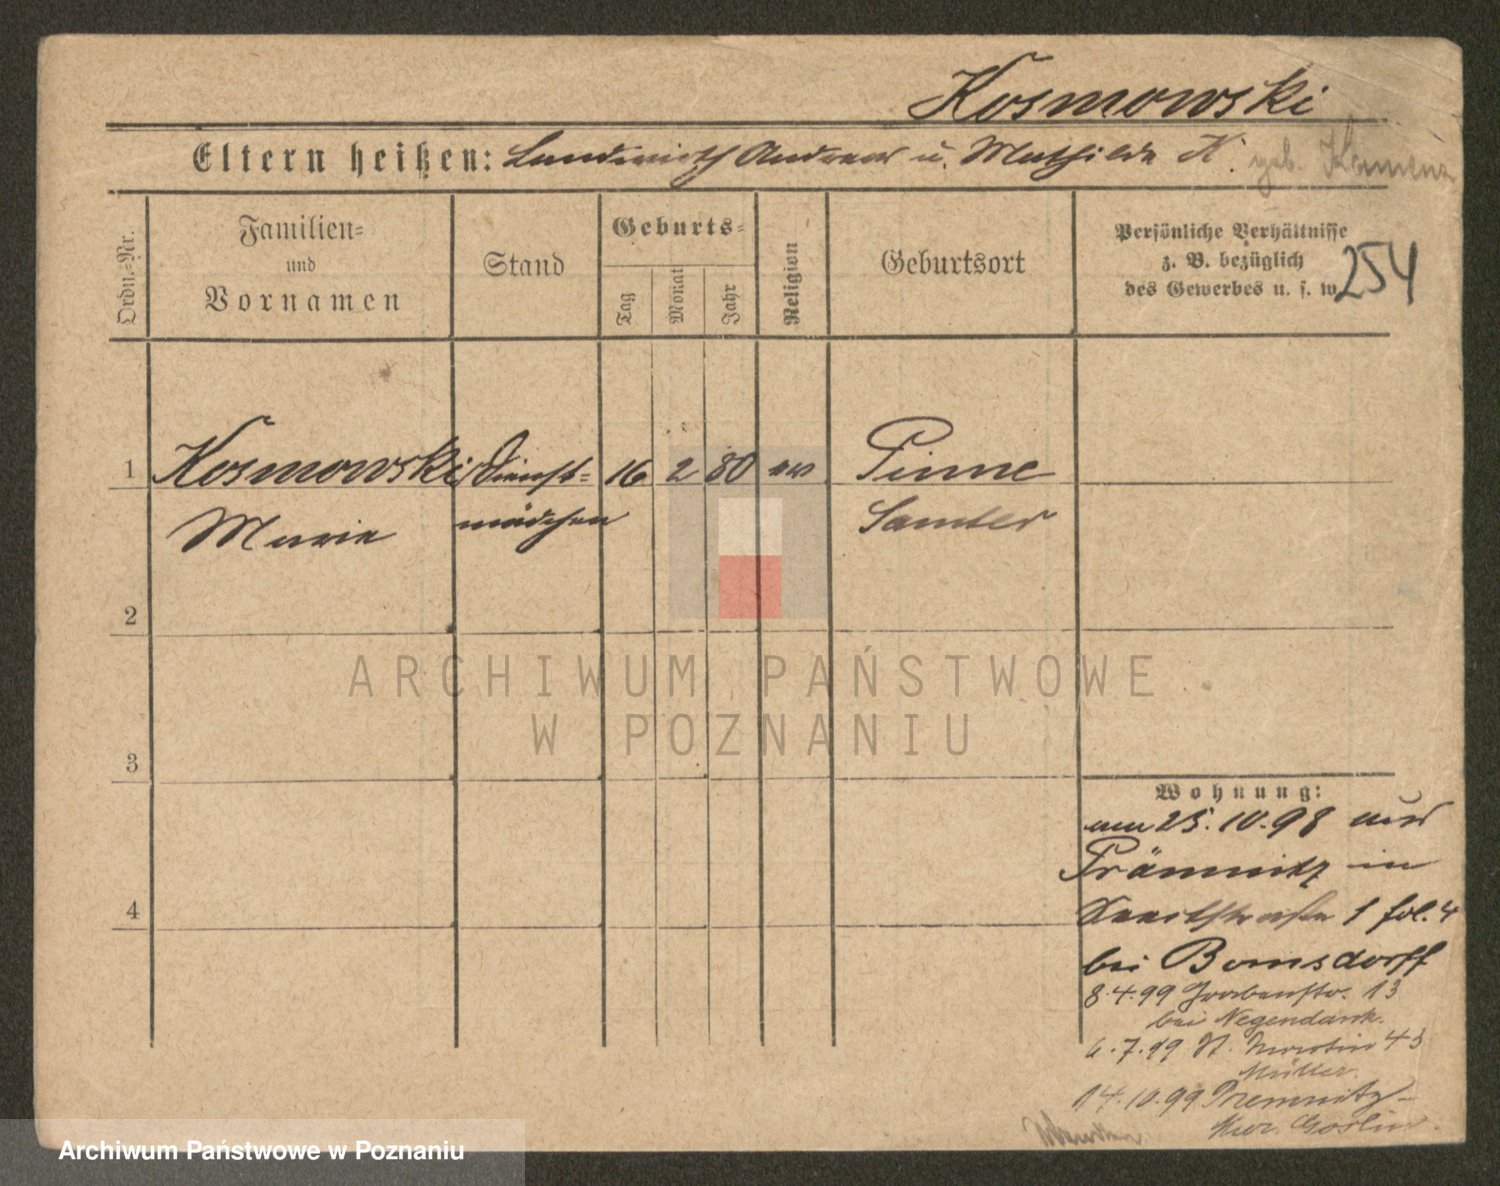 Kosmowski
Eltern heißen: Landwirth Andreas u. Mathilde K. geb.
Ordn.-Nr.
Familien-
und
Vornamen
Stand
Geburts-
Tag
Monat
Jahr
Religion
Geburtsort
Persönliche Verhältnisse
z. B. bezüglich
des Gewerbes u. s. w.
254
1 Kosmowski Dienst- 16 2 80 ev Pinne
Marie mädchen Samter
2
ARCHIWUM PAŃSTWOWE
W POZNANIU
3
Wohnung:
am 25.10.98 aus
Prämnitz in
1 fol. 4
bei Bomsdorff
8.4.99 13
bei Negendank.
6.7.99 St. Martin 43
Müller.
14.10.99 Premnitz
Goslin.
4
Archiwum Państwowe w Poznaniu